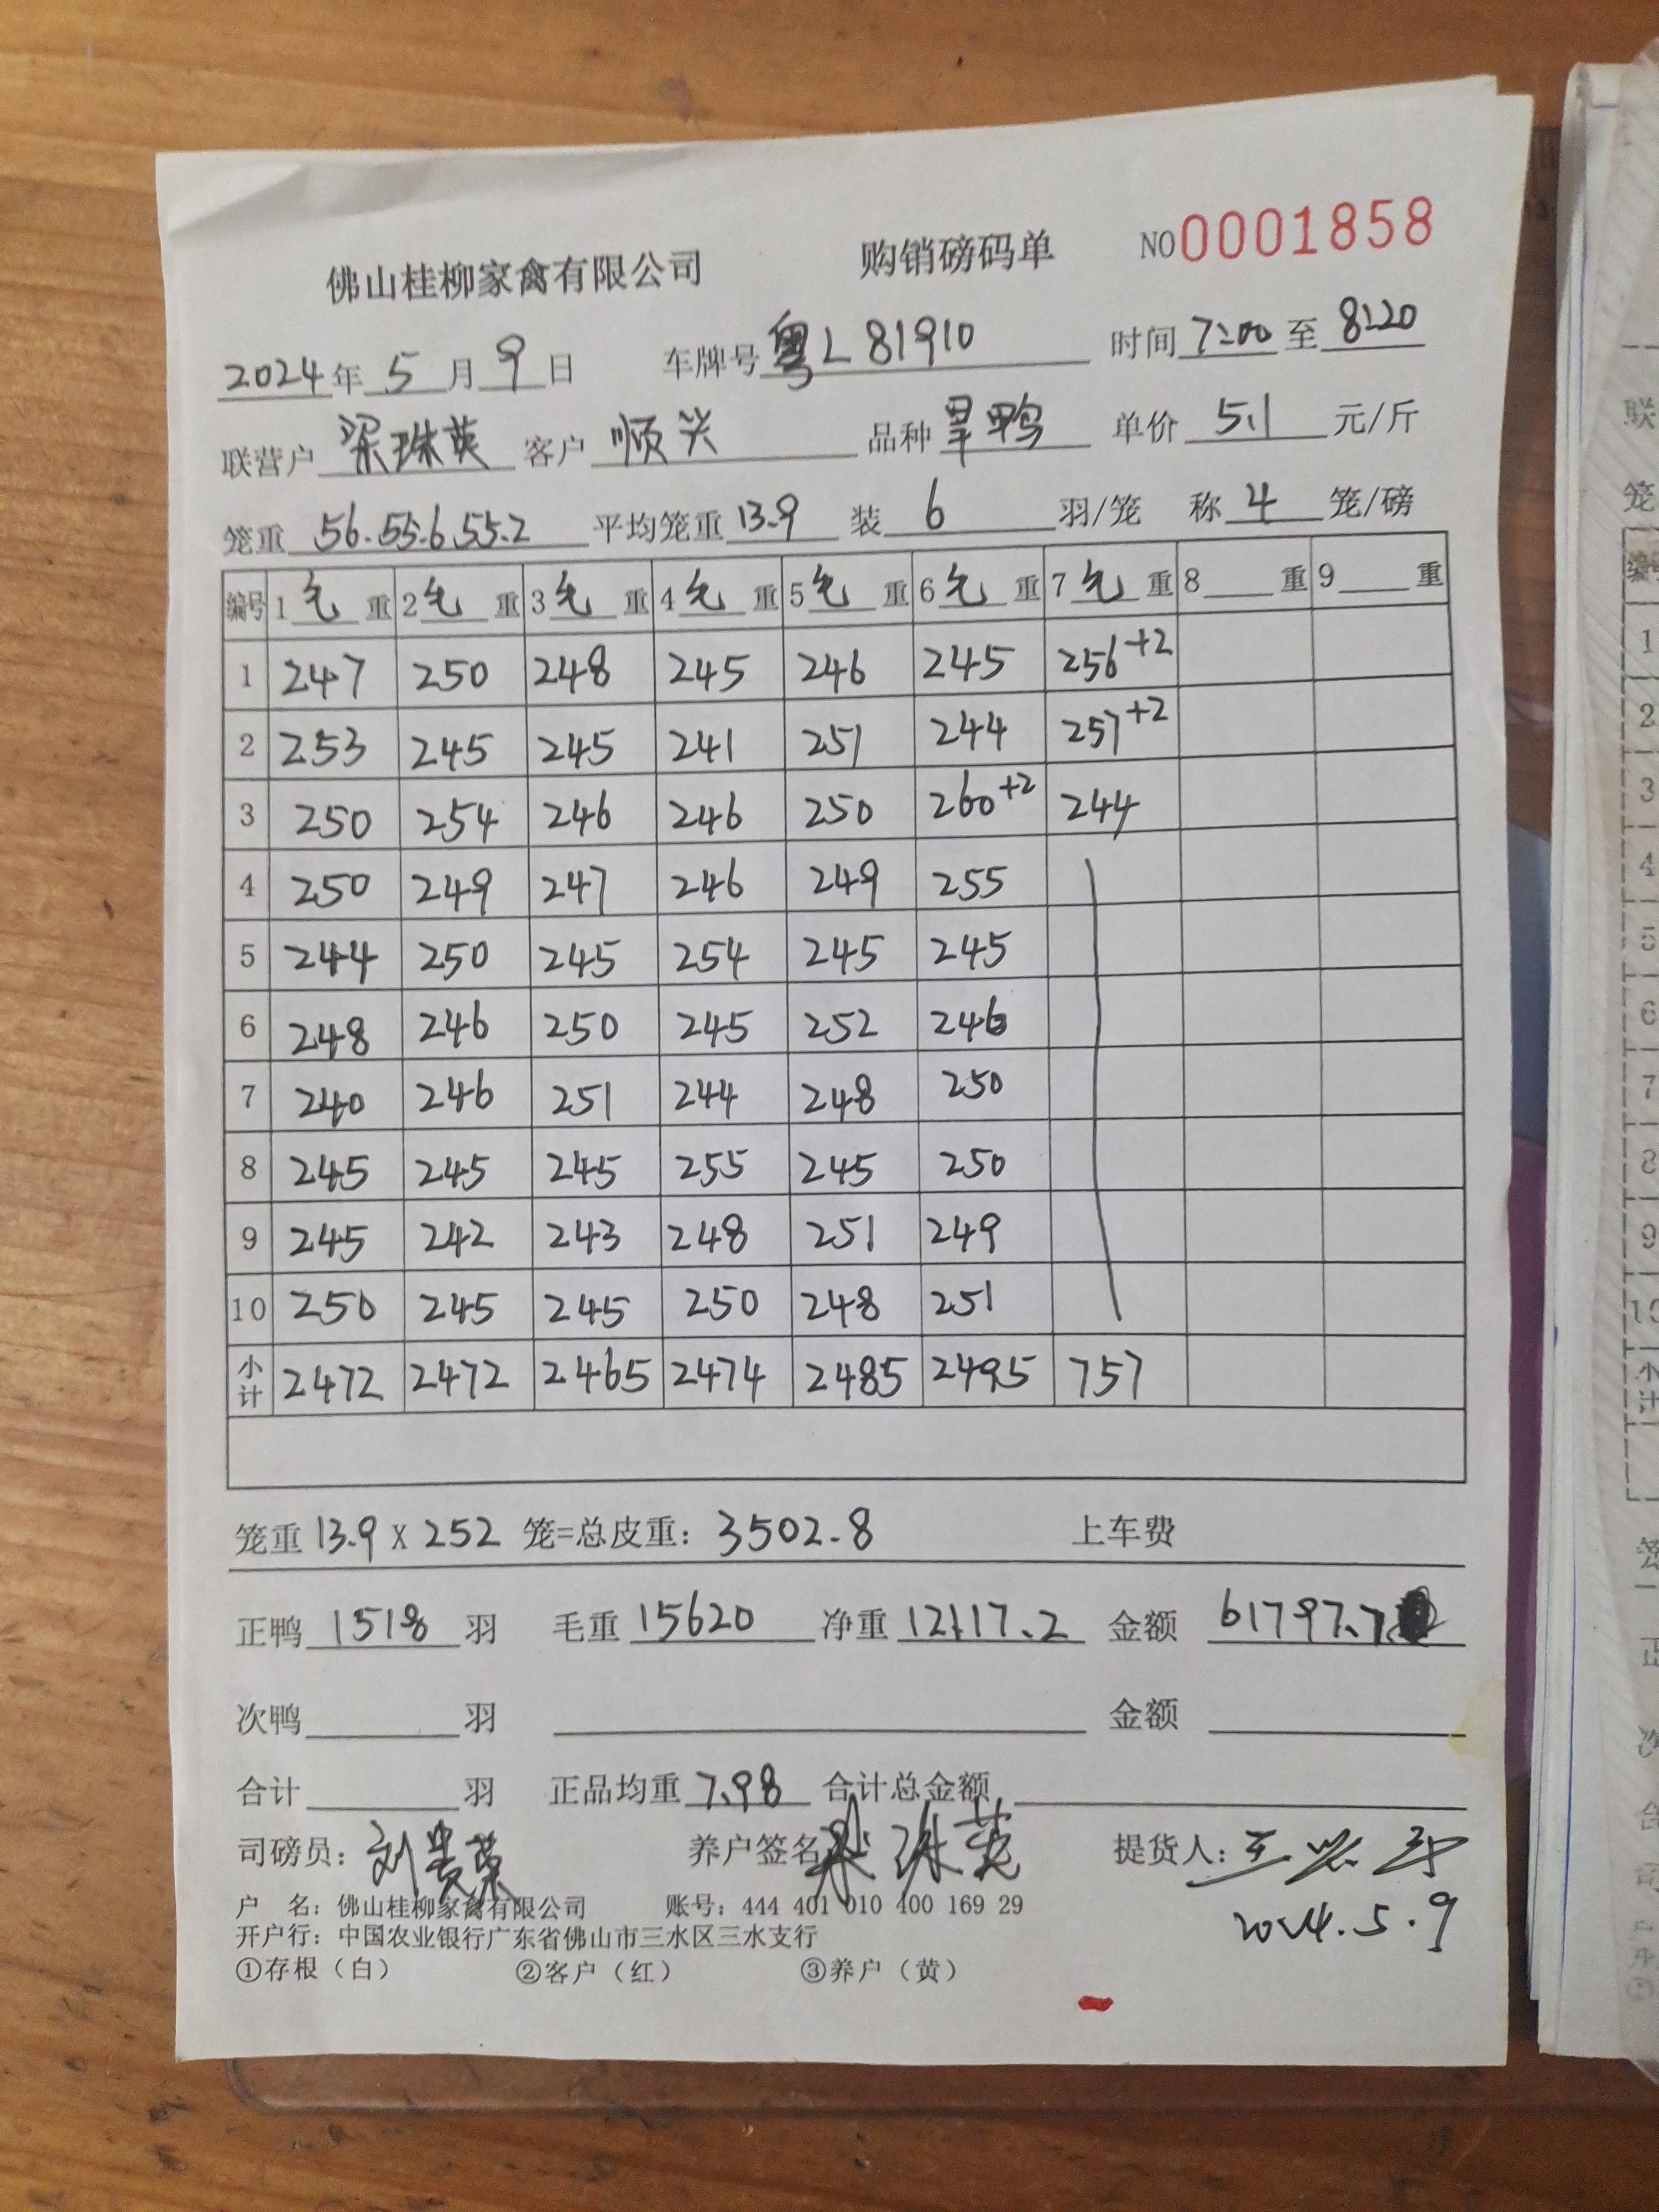 佛山桂柳家禽有限公司 购销磅码单 NO 0001858
2024年 5 月 9 日 车牌号 粤L 81910 时间 7:00 至 8:20
联营户 梁珠英 客户 顺兴 品种 旱鸭 单价 5.1 元/斤
笼重 56.55.6.55.2 平均笼重 13.9 装 6 羽/笼 称 4 笼/磅
编号 1 毛 重 2 毛 重 3 毛 重 4 毛 重 5 毛 重 6 毛 重 7 毛 重 8 重 9 重
1 247 250 248 245 246 245 256+2
2 253 245 245 241 251 244 257+2
3 250 254 246 246 250 260+2 244
4 250 249 247 246 249 255
5 244 250 245 254 245 245
6 248 246 250 245 252 246
7 240 246 251 244 248 250
8 245 245 245 255 245 250
9 245 242 243 248 251 249
10 250 245 245 250 248 251
小计 2472 2472 2465 2474 2485 2495 757
笼重 13.9 X 252 笼=总皮重: 3502.8 上车费
正鸭 1518 羽 毛重 15620 净重 12117.2 金额 61797.7
次鸭 羽 金额
合计 羽 正品均重 7.98 合计总金额
司磅员: 刘贵荣 养户签名 梁珠英 提货人:
户 名: 佛山桂柳家禽有限公司 账号: 444 401 010 400 169 29
2024.5.9
开户行: 中国农业银行广东省佛山市三水区三水支行
①存根（白） ②客户（红） ③养户（黄）